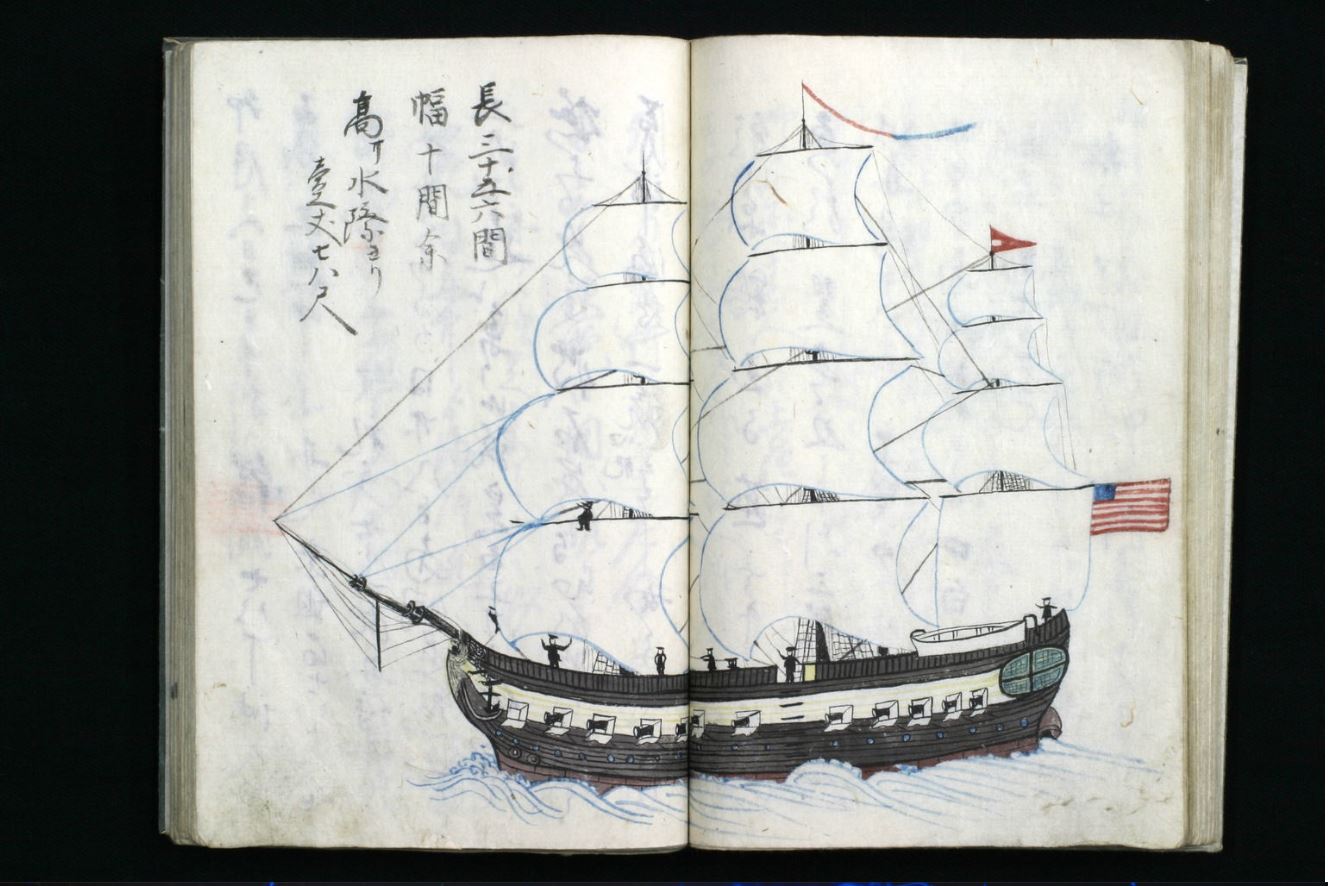 長三十五六間
幅十間余
高サ水際より
壱丈七八尺